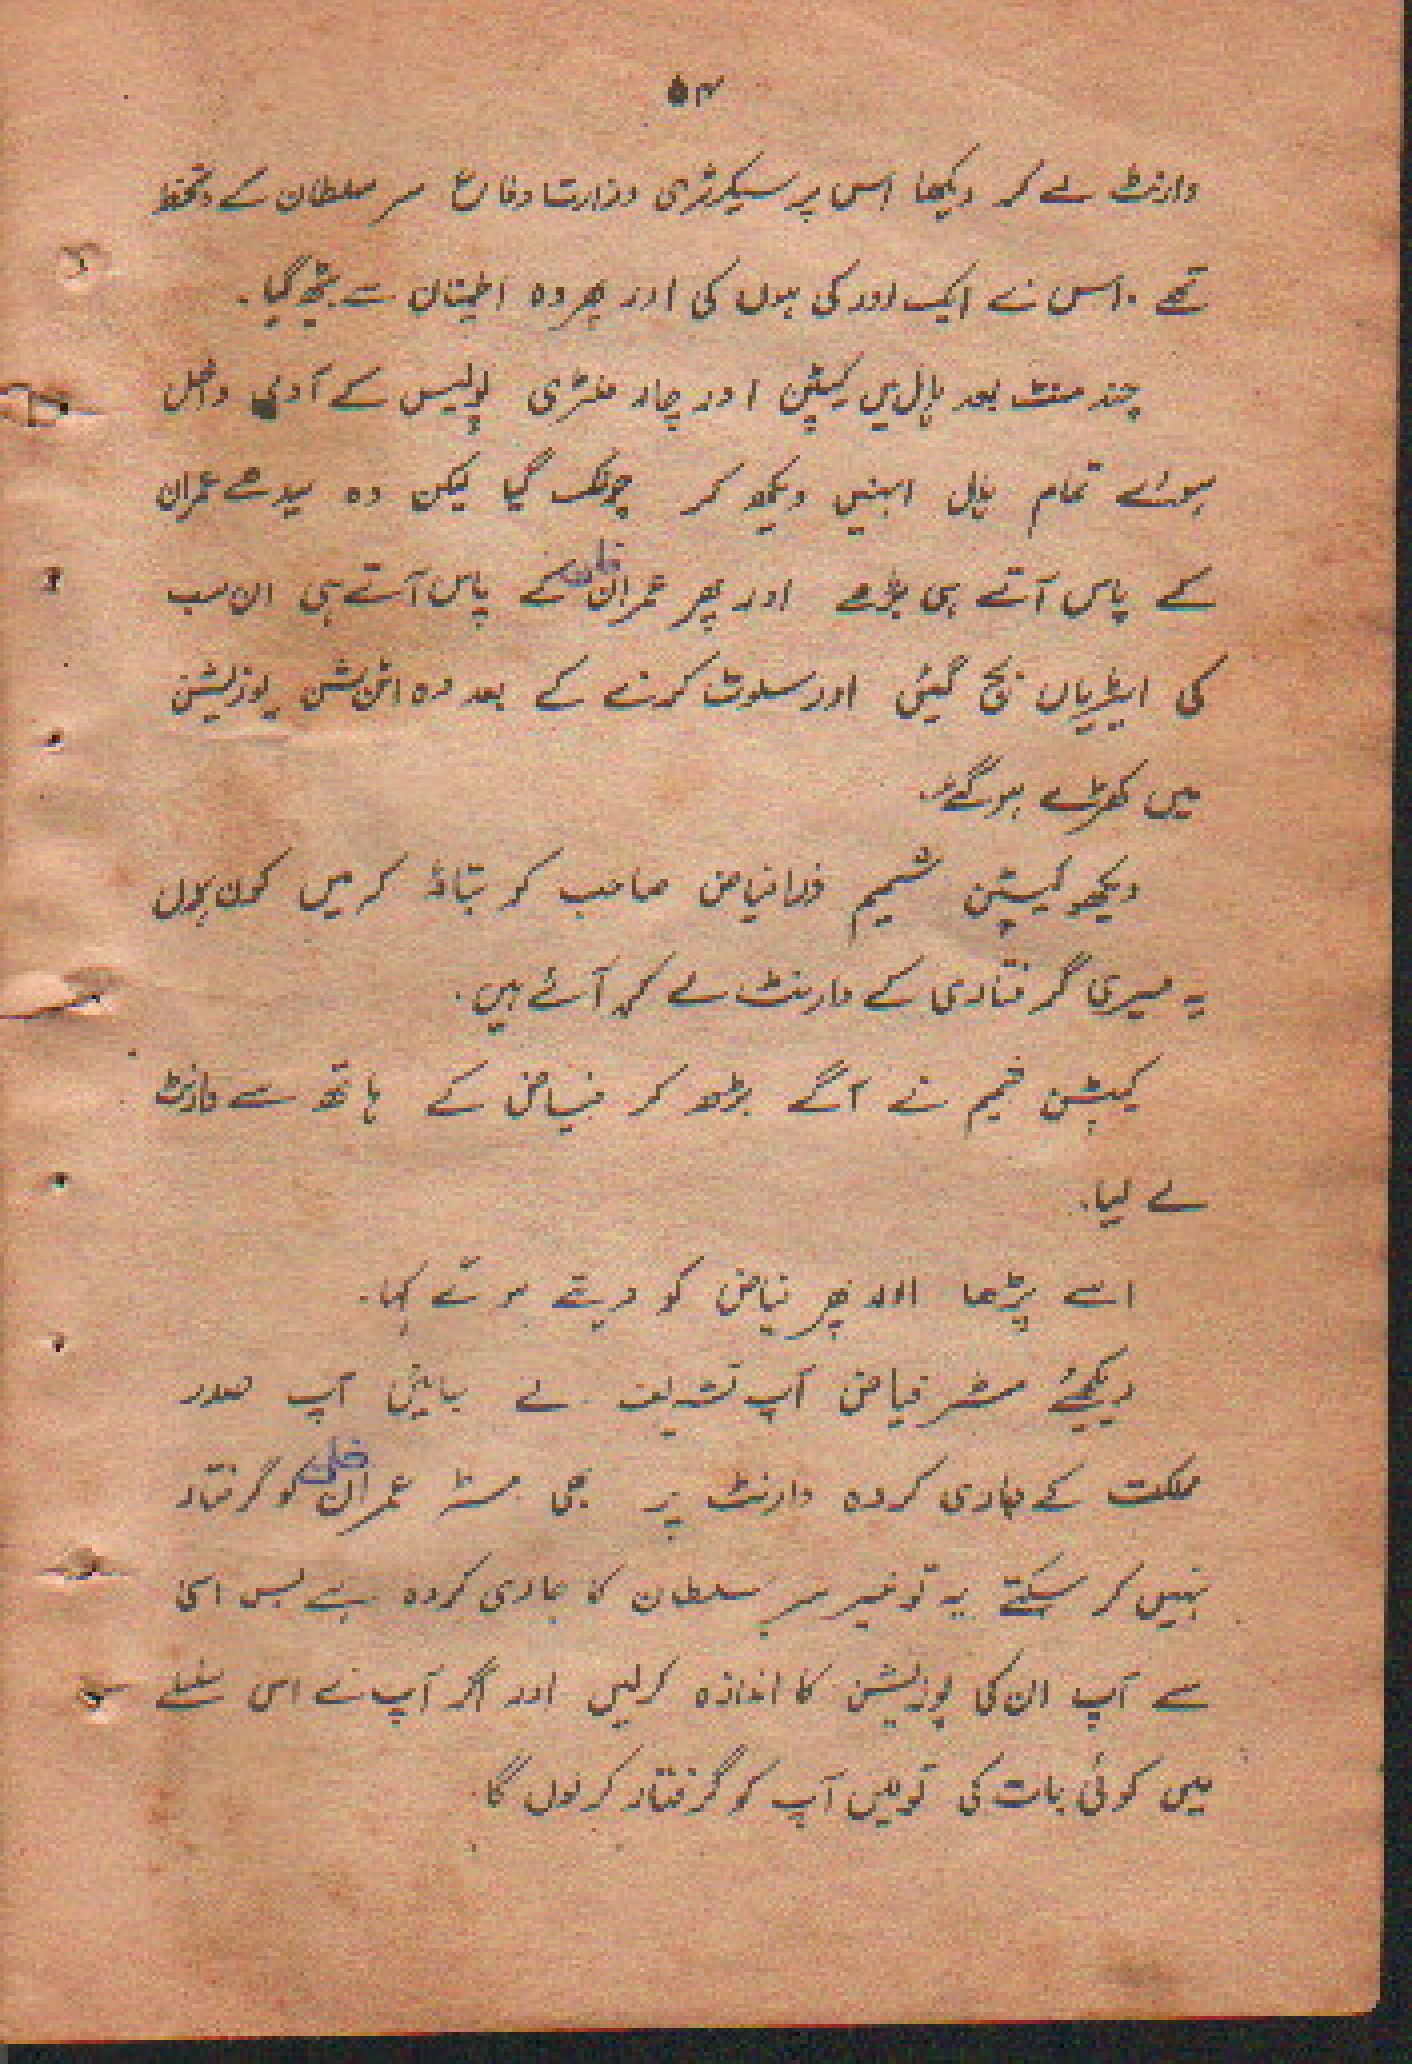 ۵۴
وارنٹ لے کر دیکھا اس پر سیکرٹری وزارت دفاع سر سلطان کے دستخط
تھے ۔ اس نے ایک اور کی ہوں کی اور پھر وہ اطمینان سے بیٹھ گیا ۔
چند منٹ بعد ہال میں کیپٹن اور چار ملٹری پولیس کے آدمی داخل
ہوئے تمام ہال انہیں دیکھ کر چونک گیا لیکن وہ سیدھے عمران
کے پاس آتے ہی بڑھے اور پھر عمران خان کے پاس آتے ہی ان سب
کی ایڑیاں بج گیئں اور سلوٹ کرنے کے بعد وہ اٹن شن پوزیشن
میں کھڑے ہوگئے۔
دیکھو کیپٹن شمیم ذرا فیاض صاحب کو بتاؤ کر میں کون ہوں
یہ میری گرفتاری کے وارنٹ لے کر آئے ہیں ۔
کیپٹن شمیم نے آگے بڑھ کر فیاض کے ہاتھ سے وارنٹ
لے لیا۔
اسے پڑھا اور پھر فیاض کو دیتے ہوتے کہا ۔
دیکھئے مسٹر فیاض آپ تشریف لے جایئں آپ صدر
مملکت کے جاری کردہ وارنٹ پر بھی مسٹر عمران خان کو گرفتار
نہیں کر سکتے یہ تو خیر سر سلطان کا جاری کردہ ہے بس اسی
سے آپ ان کی پوزیشن کا اندازہ کرلیں اور اگر آپ نے اس سلسلے
میں کوئی بات کی تو میں آپ کو گرفتار کر لوں گا